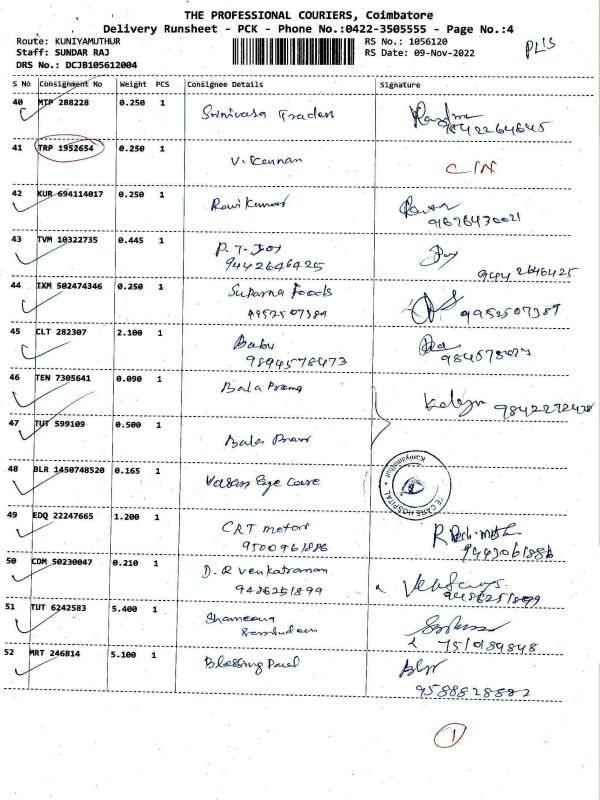 THE PROFESSIONAL COURIERS, Coimbatore
Delivery Runsheet - PCK - Phone No.:0422-3505555 - Page No.:4
Route: KUNIYAMUTHUR RS No.: 1056120
Staff: SUNDAR RAJ RS Date: 09-Nov-2022
DRS No.: DCJB105612004
S No Consignment No Weight PCS Consignee Details Signature
40 MTP 288228 0.250 1 Srinivasa Traders
9842264645
41 TRP 1952654 0.250 1 V. Kannan C/N
42 KUR 694114017 0.250 1 Ravi Kumar
9626430021
43 TVM 10322735 0.445 1 P. T. Joy Joy
9442646425 9442646425
44 IXM 502474346 0.250 1 Suparna Foods
9952507389 9952507389
45 CLT 282307 2.100 1 Babu
9894578473
46 TEN 7305641 0.090 1 Bala Prama
9842272428
47 TUT 599109 0.500 1 Bala
48 BLR 1450748520 0.165 1 Vasan Eye Care
EYE CARE HOSPITAL Kuniyamuthur
49 EDQ 22247665 1.200 1 CRT motors
9500961886 9443061886
50 CDM 50230047 0.210 1 D. R Venkatraman
9486251899 9486251899
51 TUT 6242583 5.400 1
7510189848
52 MRT 246814 5.100 1 Blessing Paul
9588828882
1